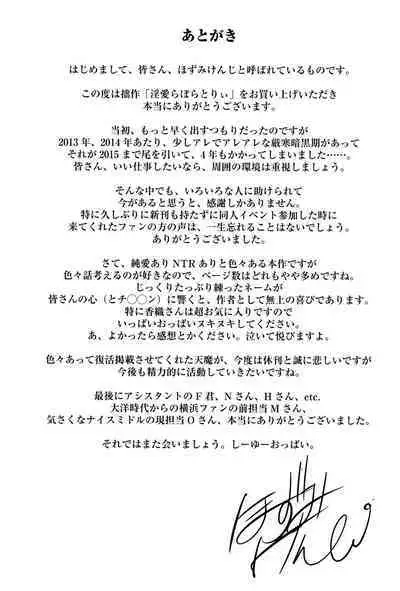 あとがき
はじめまして、皆さん、ほずみけんじと呼ばれているものです。
この度は拙作「淫愛らぼらとりぃ」をお買い上げいただき
本当にありがとうございます。
当初、もっと早く出すつもりだったのですが
2013年、2014年あたり、少しアレでアレアレな厳寒暗黒期があって
それが2015まで尾を引いて、4年もかかってしまいました……。
皆さん、いい仕事したいなら、周囲の環境は重視しましょう。
そんな中でも、いろいろな人に助けられて
今があると思うと、感謝しかありません。
特に久しぶりに新刊も持たずに同人イベント参加した時に
来てくれたファンの方の声は、一生忘れることはないでしょう。
ありがとうございました。
さて、純愛ありNTRありと色々ある本作ですが
色々話考えるのが好きなので、ページ数はどれもやや多めですね。
じっくりたっぷり練ったネームが
皆さんの心（とチ◯◯ン）に響くと、作者として無上の喜びであります。
特に香織さんは超お気に入りですので
いっぱいおっぱいヌキヌキしてください。
あ、よかったら感想とかください。泣いて悦びますよ。
色々あって復活掲載させてくれた天魔が、今度は休刊と誠に悲しいですが
今後も精力的に活動していきたいですね。
最後にアシスタントのF君、Nさん、Hさん、etc.
大洋時代からの横浜ファンの前担当Mさん、
気さくなナイスミドルの現担当Oさん、本当にありがとうございました。
それではまた会いましょう。しーゆーおっぱい。
ほずみ
けんじ